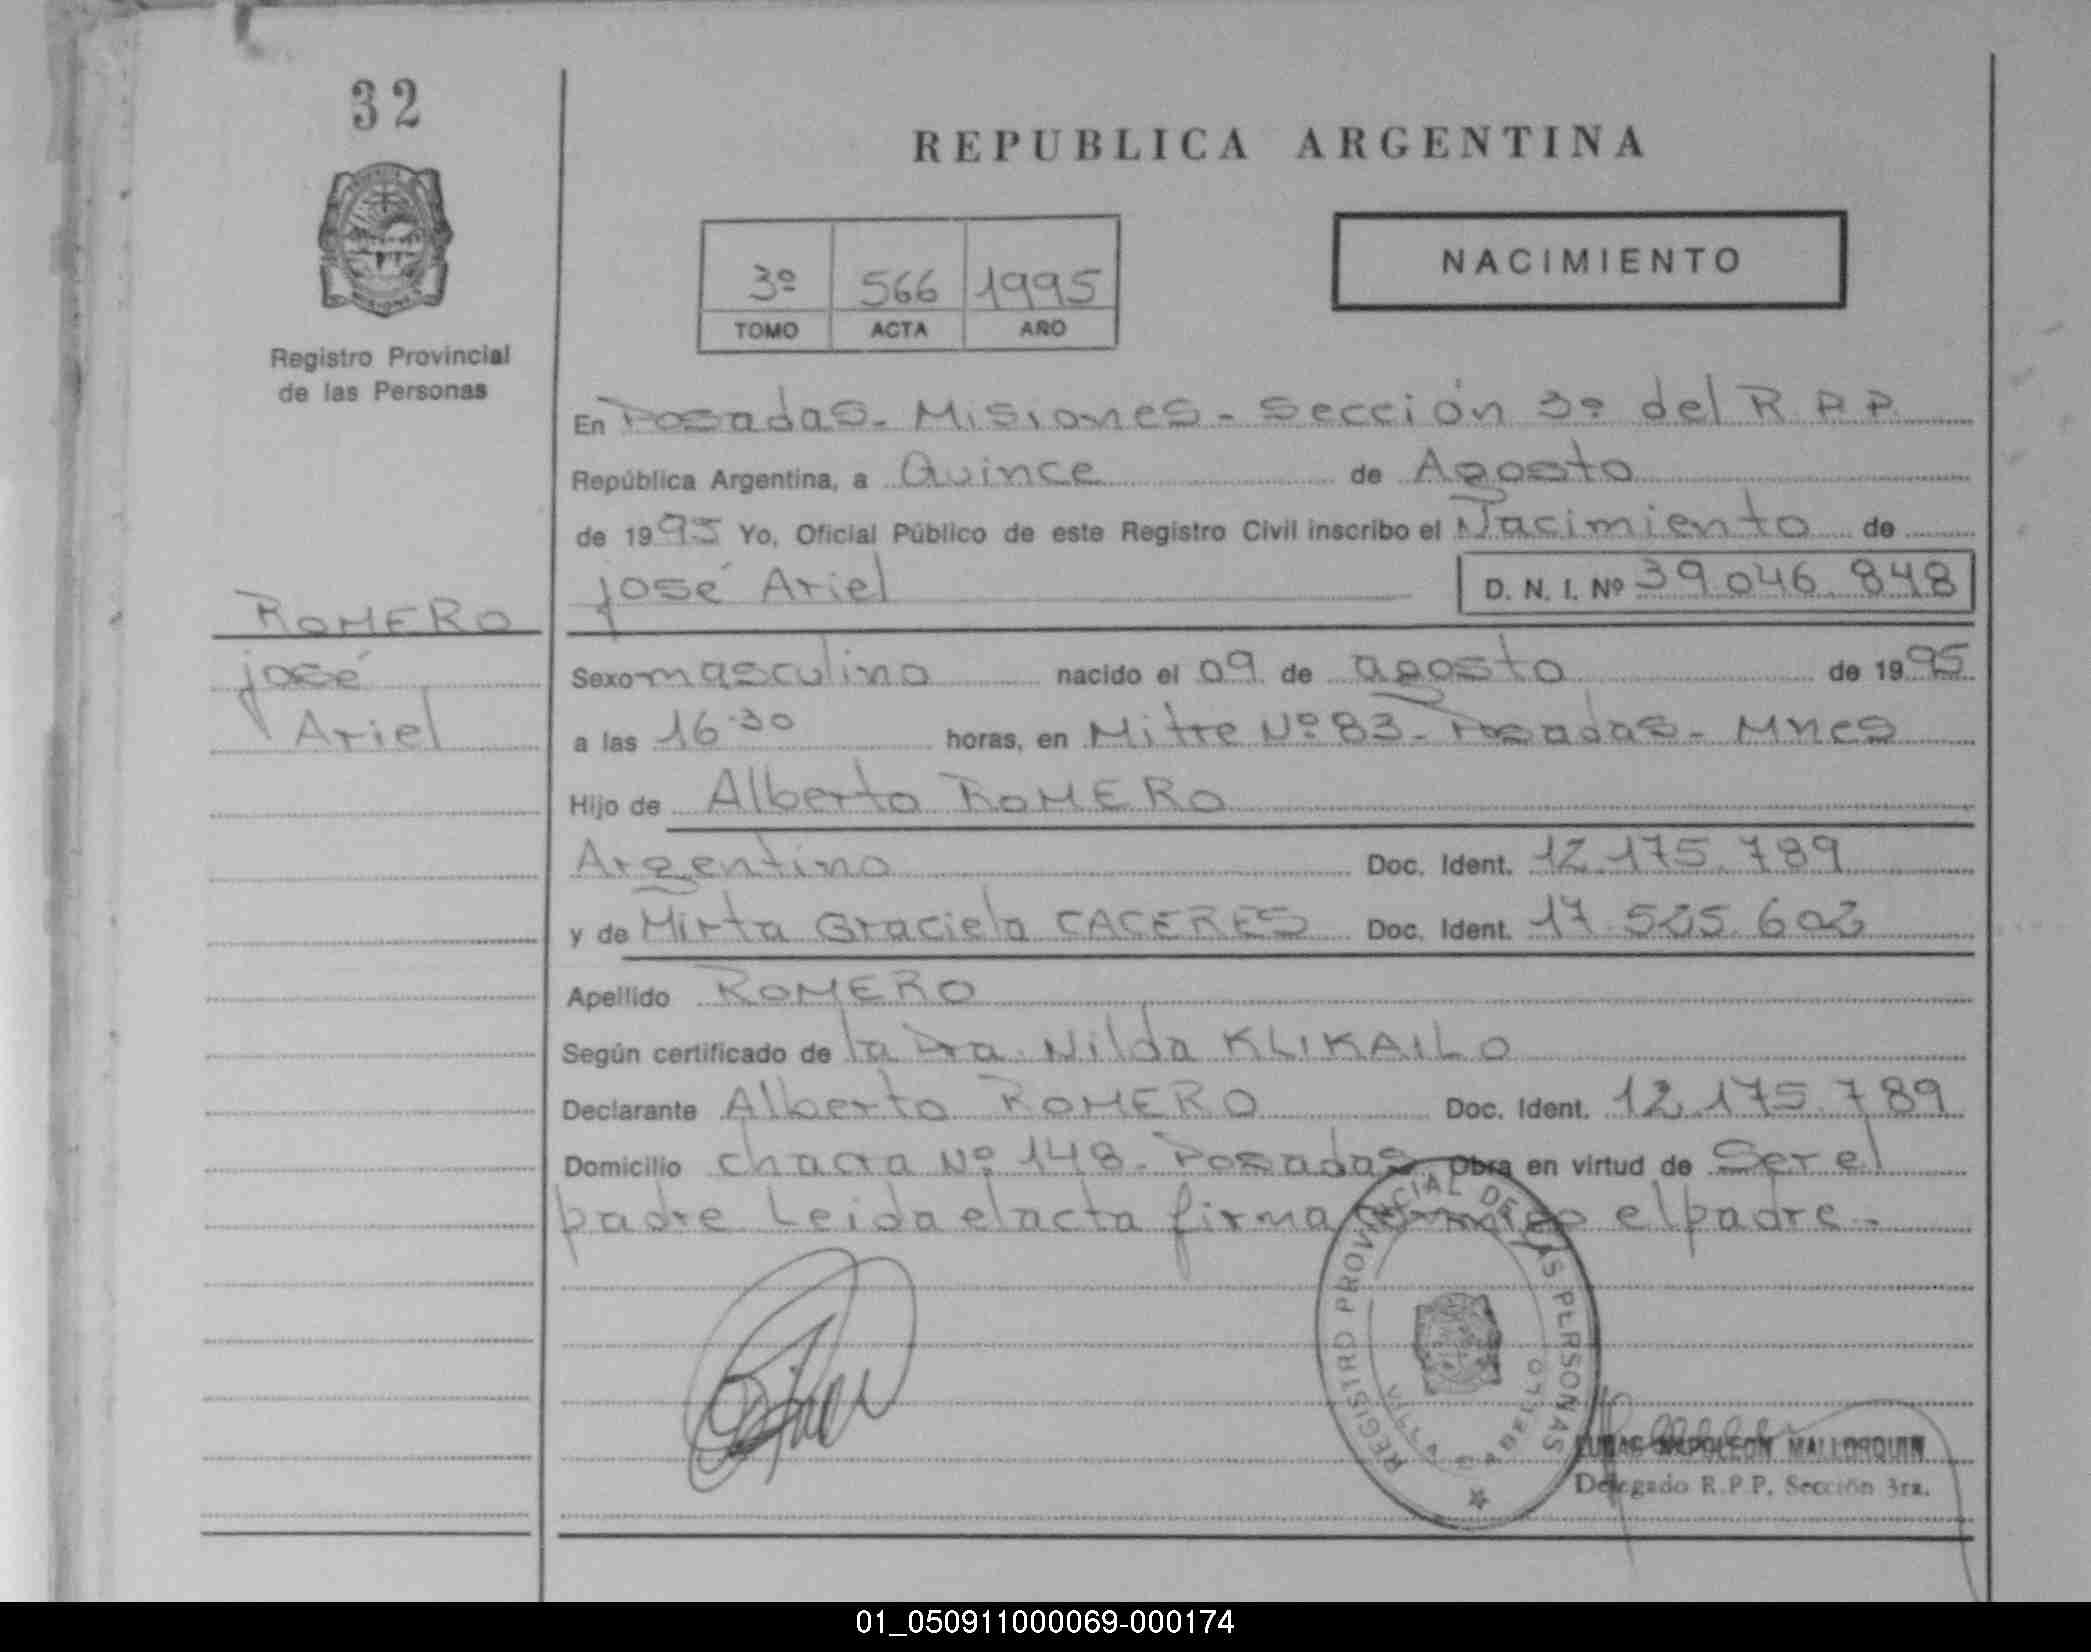 32
REPUBLICA ARGENTINA
NACIMIENTO
3º 566 1995
TOMO ACTA AÑO
Registro Provincial
de las Personas
En Posadas - Misiones - Sección 3º del R P P
República Argentina, a Quince de Agosto
de 1995 Yo, Oficial Público de este Registro Civil inscribo el Nacimiento de
José Ariel D. N. I. Nº 39.046.848
ROMERO
José
Ariel
Sexo masculino nacido el 09 de agosto de 1995
a las 16.30 horas, en Mitre Nº 83 - Posadas - Mnes
Hijo de Alberto ROMERO
Argentino Doc. Ident. 12.175.789
y de Mirta Graciela CACERES Doc. Ident. 17.525.602
Apellido ROMERO
Según certificado de la Dra. Nilda KLIKAILO
Declarante Alberto ROMERO Doc. Ident. 12.175.789
Domicilio chacra Nº 148 - Posadas Obra en virtud de Ser el
padre Leida el acta firma conmigo el padre.-
REGISTRO PROVINCIAL DE LAS PERSONAS
VILLA CABELLO
LUCAS NAPOLEON MALLORQUIN
Delegado R.P.P. Sección 3ra.
01_050911000069-000174